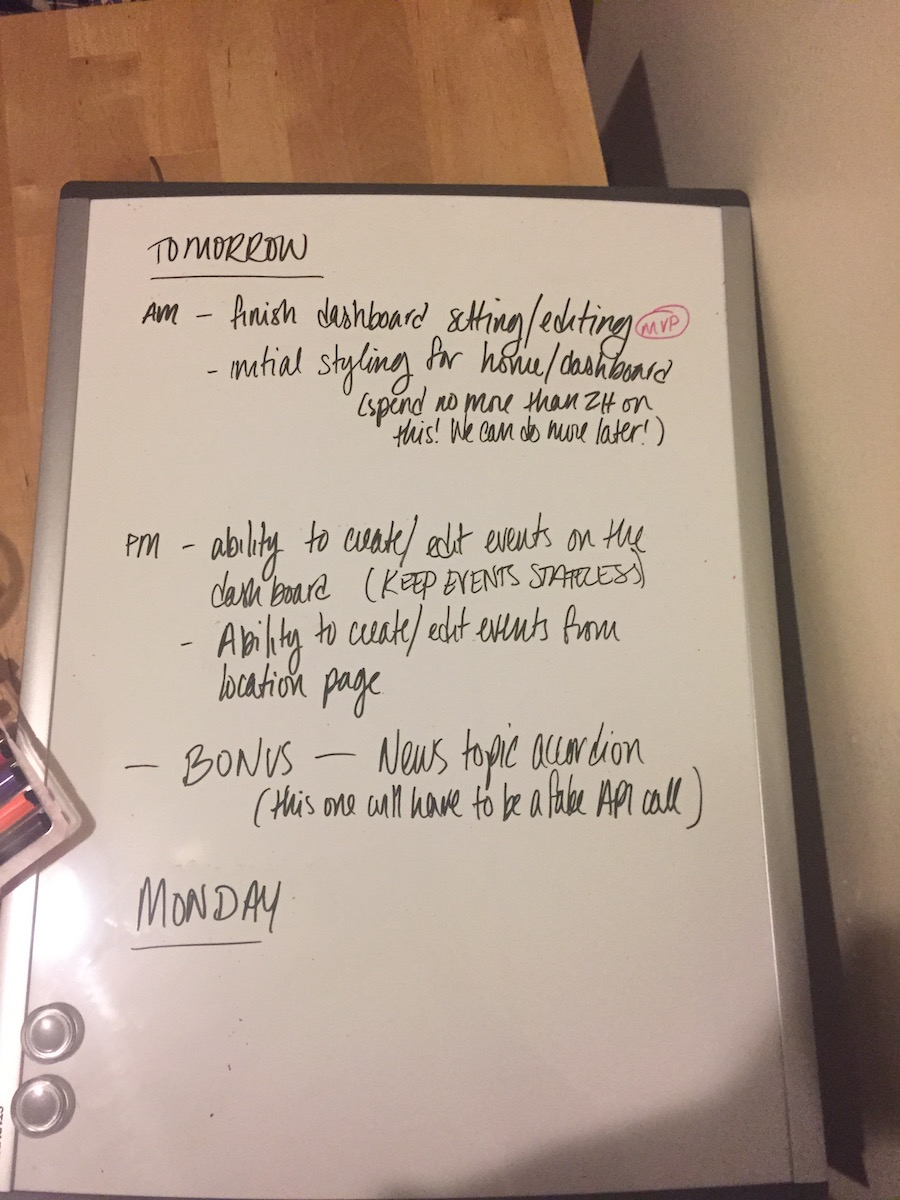 TOMORROW
AM - finish dashboard setting/editing MVP
- initial styling for home/dashboard
(spend no more than 2H on
this! We can do more later!)
PM - ability to create/edit events on the
dashboard (KEEP EVENTS STATELESS)
- Ability to create/edit events from
location page
- BONUS - News topic accordion
(this one will have to be a fake API call)
MONDAY